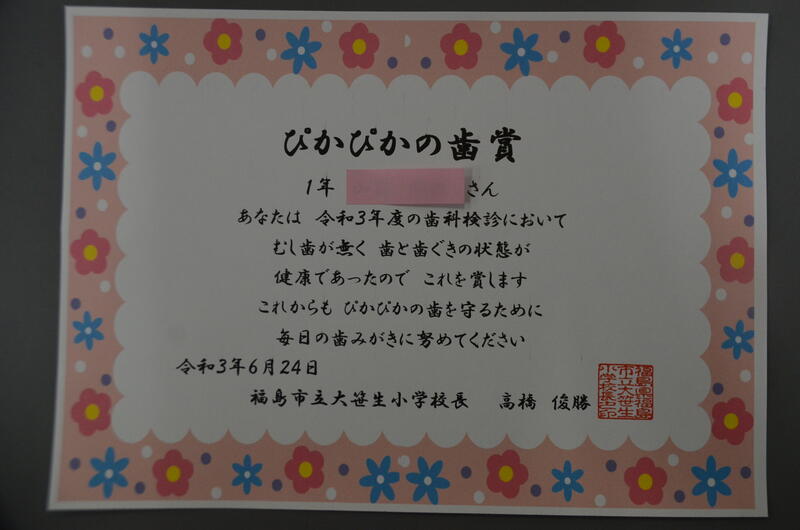 ぴかぴかの歯賞
1年 さん
あなたは 令和3年度の歯科検診において
むし歯が無く 歯と歯ぐきの状態が
健康であったので これを賞します
これからも ぴかぴかの歯を守るために
毎日の歯みがきに努めてください
令和3年6月24日
福島市立大笹生小学校長 高橋 俊勝
福島県福島
市立大笹生
小学校長之印